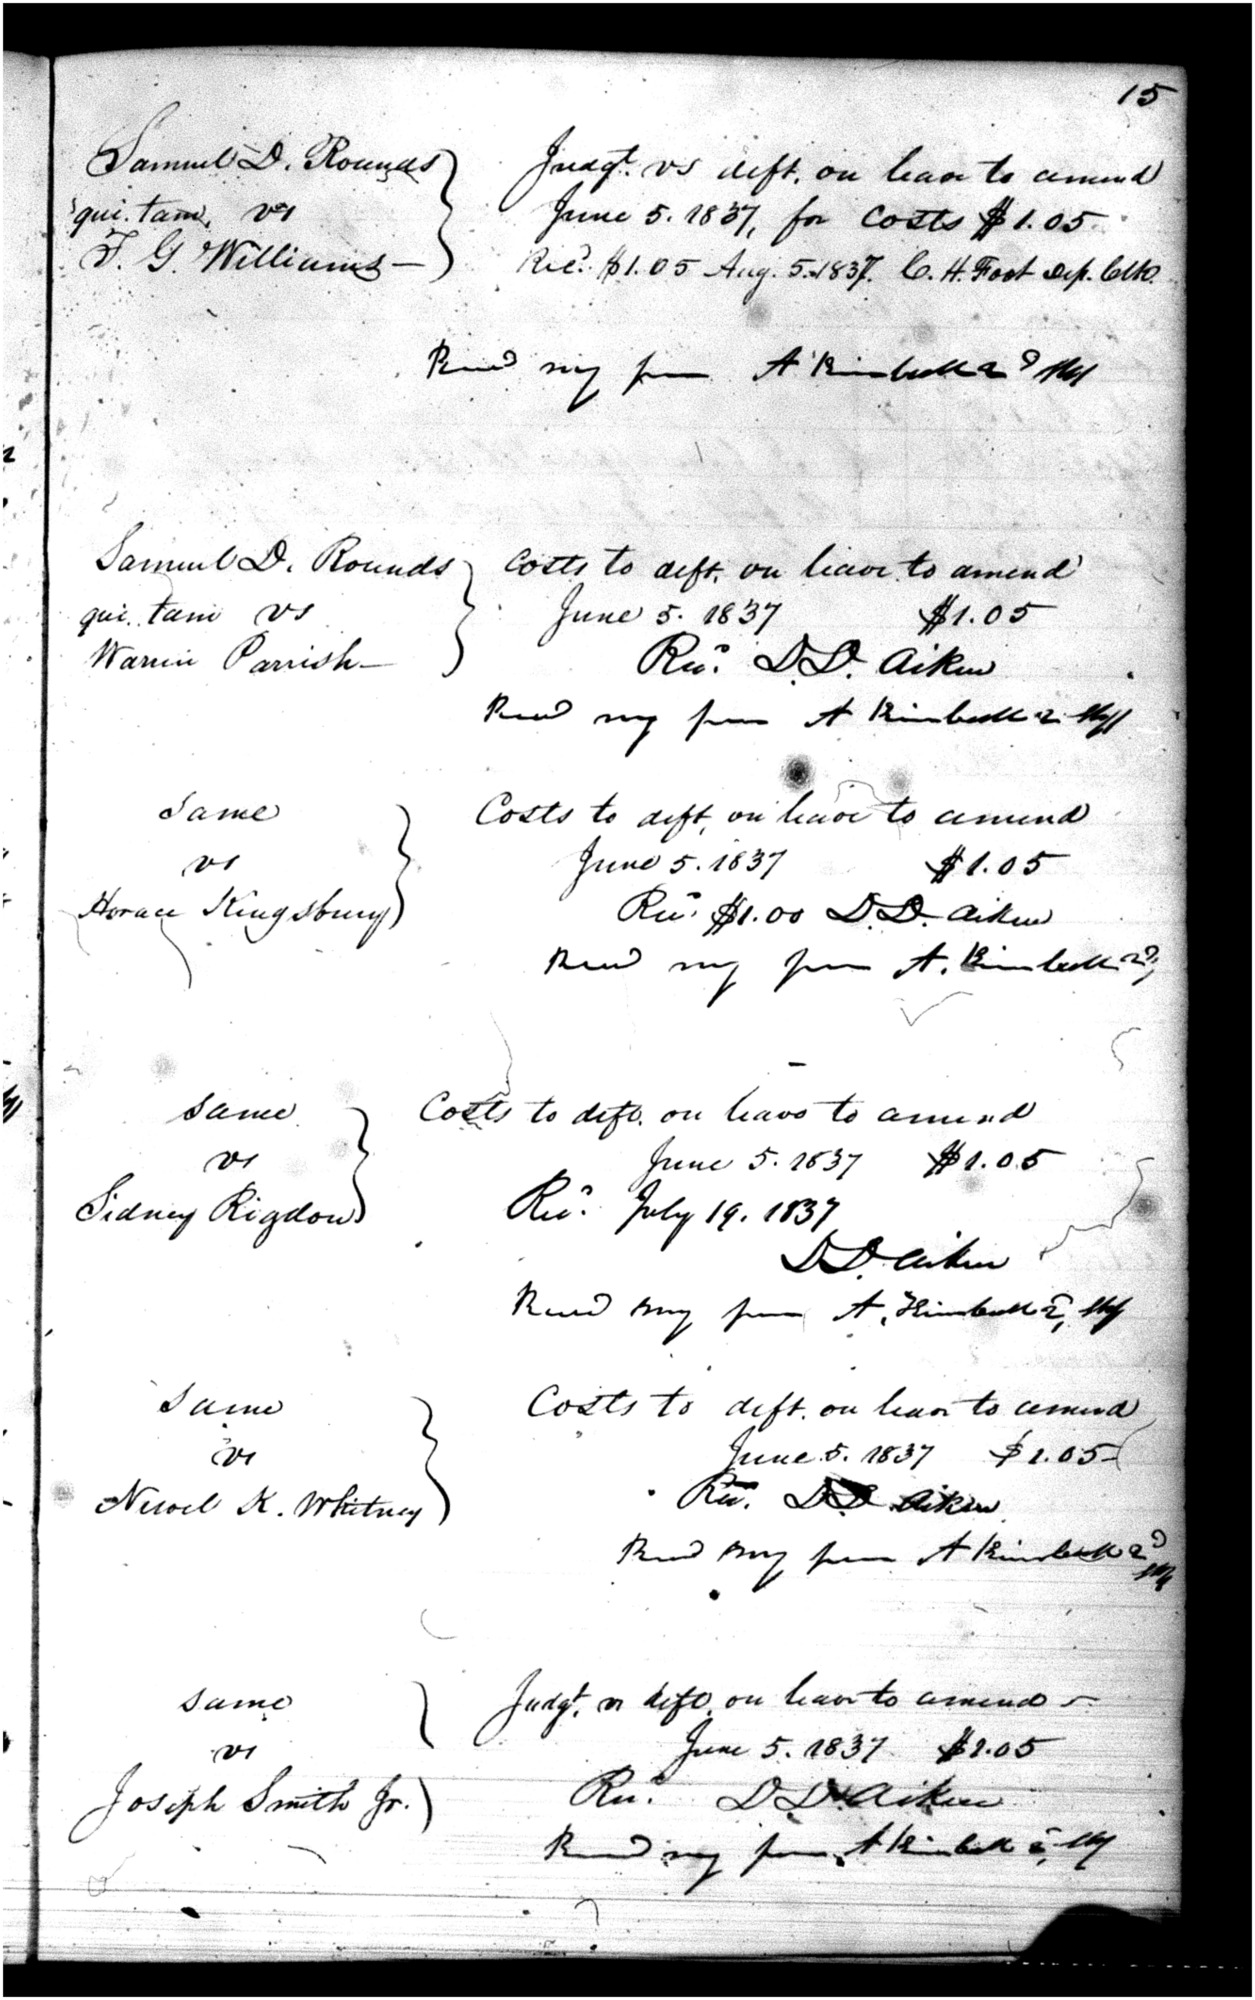 15
Samuel D. Rounds
qui. tam, vs
F. G. Williams —
Judgt. vs deft. on leave to amend
June 5. 1837, for costs $1.05
Recd. $1.05 Aug. 5. 1837. C. H. Foot Dep. Clk.
Recd my fees A Kimball 2d
Samuel D. Rounds
qui. tam vs
Warrin Parrish —
Costs to deft. on leave to amend
June 5. 1837 $1.05
Recd. D. D. Aiken
Recd my fees A Kimball 2
Same
vs
Horace Kingsbury
Costs to deft. on leave to amend
June 5. 1837 $1.05
Recd. $1.00 D. D. Aiken
Recd my fees A. Kimball 2d,
Same
vs
Sidney Rigdon
Costs to deft. on leave to amend
June 5. 1837 $1.05
Recd. July 19. 1837
D D. Aiken
Recd my fees A. Kimball 2d,
Same
vs
Newel K. Whitney
Costs to deft. on leave to amend
June 5. 1837 $1.05
Recd. D D Aiken
Recd my fees A Kimball 2d
Same
vs
Joseph Smith Jr.
Judgt. vs deft. on leave to amend —
June 5. 1837 $1.05
Recd. D D Aiken
Recd my fees A Kimball 2d,